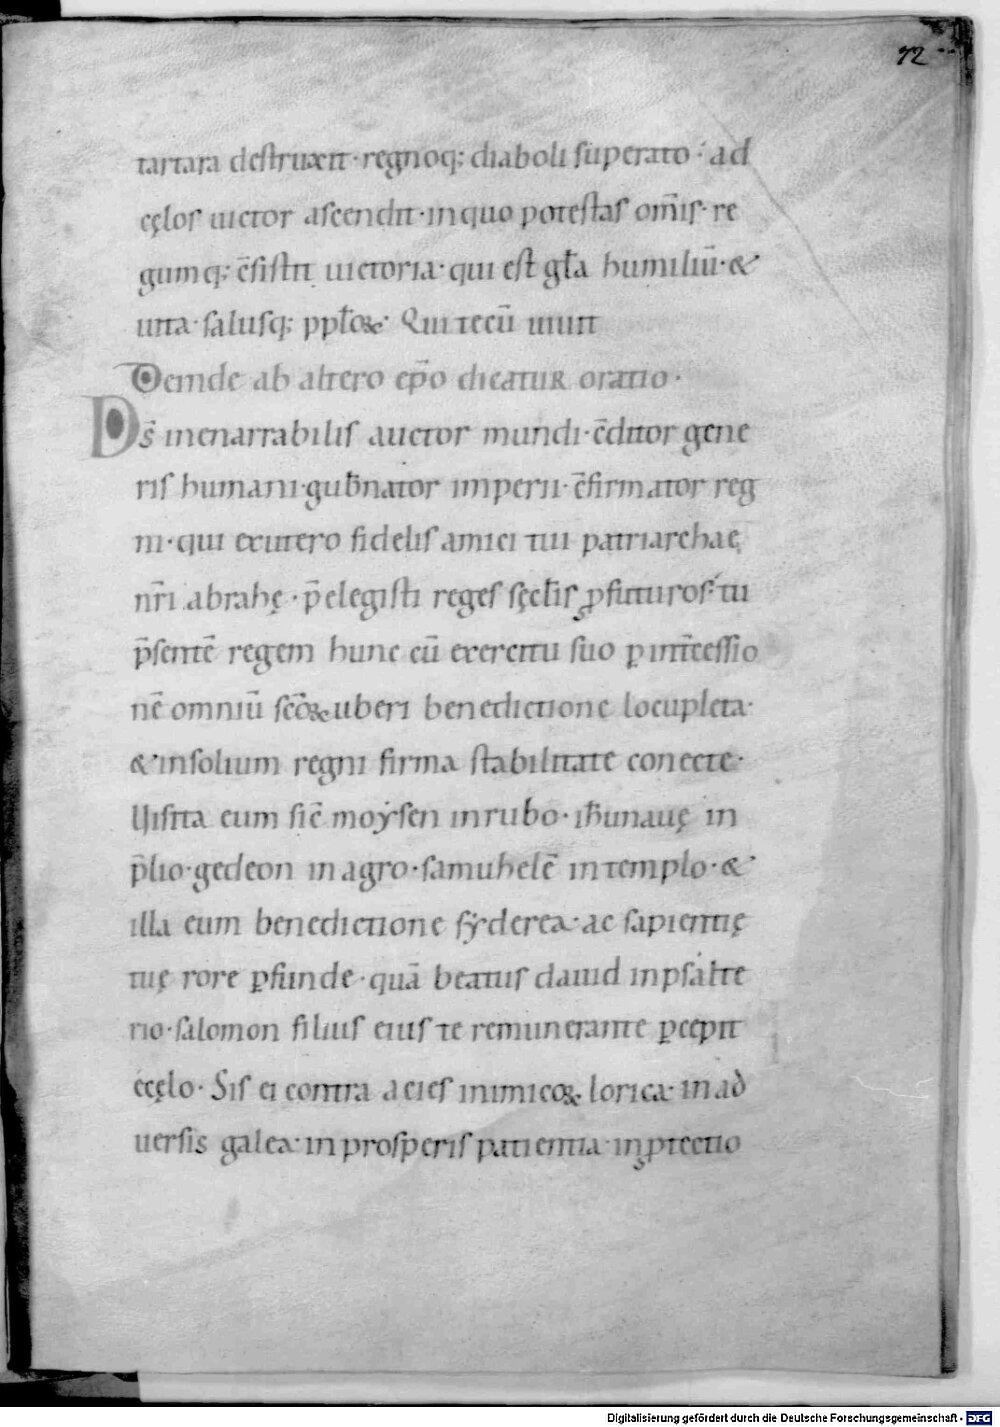 72
tartara destruxit · regnoq; diaboli superato · ad
cęlos uictor ascendit · in quo potestas om̄is · re
gumq; c̄sistit uictoria · qui est gl̄a humiliū · &
uita · salusq; ppl̄oꝝ · Qui tecū uiuit
Deinde ab altero ep̄o dicatur oratio ·
D̄s inenarrabilis auctor mundi · c̄ditor gene
ris humani · gub̄nator imperii · c̄firmator reg
ni · qui ex utero fidelis amici tui patriarchae
nr̄i abrahę · p̄elegisti reges sęcl̄is ꝓfuturos · tu
p̄sentē regem hunc cū exercitu suo ꝑ int̄cessio
nē omniū sc̄oꝝ uberi benedictione locupleta ·
& in solium regni firma stabilitate conecte ·
Uisita eum sic̄ moẏsen in rubo · ih̄unauę in
p̄lio · gedeon in agro · samuhelē in templo · &
illa eum benedictione sẏderea · ac sapientię
tuę rore ꝑfunde · quā beatus dauid in psalte
rio · salomon filius eius te remunerante ꝑcepit
ecęlo · Sis ei contra acies inimicoꝝ lorica · in ad
uersis galea · in prosperis patientia · in ꝓtectio
Digitalisierung gefördert durch die Deutsche Forschungsgemeinschaft - DFG